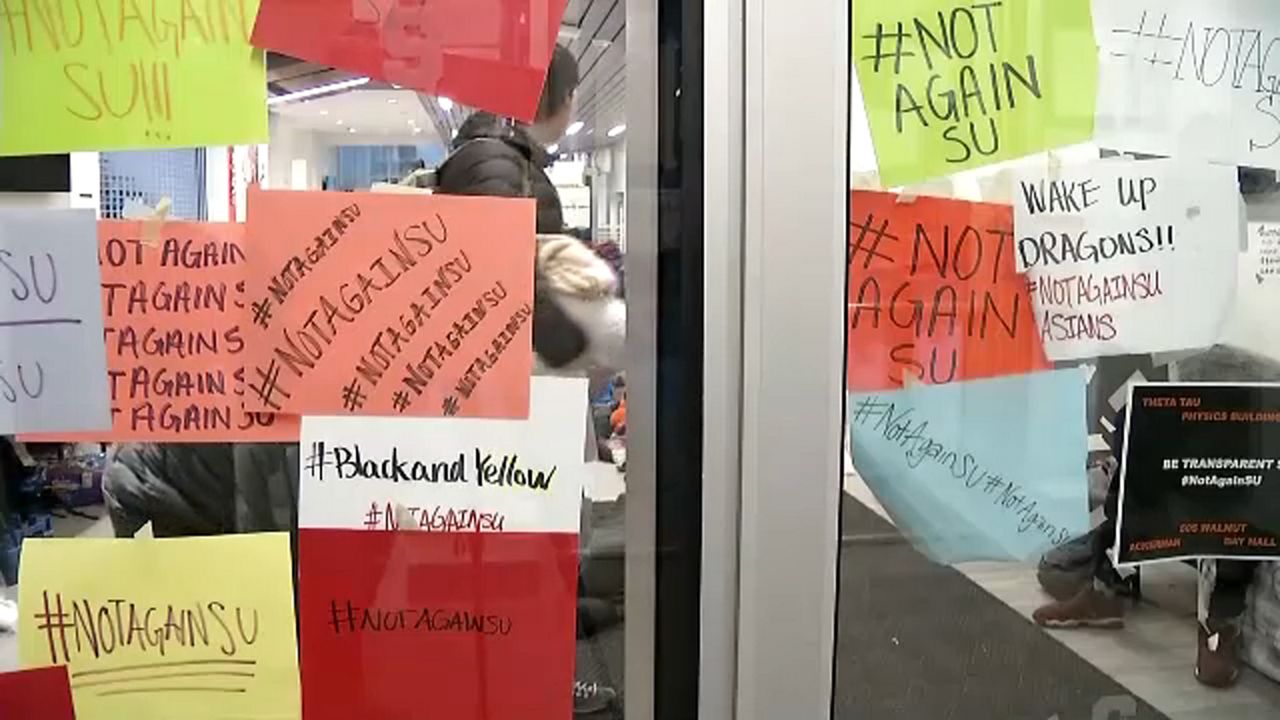 #NOTAGAIN
SU!!!
SU
SU
OT AGAIN
TAGAINS
TAGAINS
TAGAINS
TAGAINSU
#NOTAGAINSU
#NOTAGAINSU
#NOTAGAINSU
#NOTAGAINSU
#NOTAGAINSU
#Blackand Yellow
#N TAGAINSU
#NOTAGAINSU
#NOTAGAINSU
#NOT
AGAIN
SU
#NOTAG
S
WAKE UP
DRAGONS!!
#NOTAGAINSU
ASIANS
#NOT
AGAIN
SU
#NotAgainSU #NotAgainSU
THETA TAU
PHYSICS BUILDING
BE TRANSPARENT S
#NotAgainSU
505 WALNUT
ACKERMAN DAY HALL